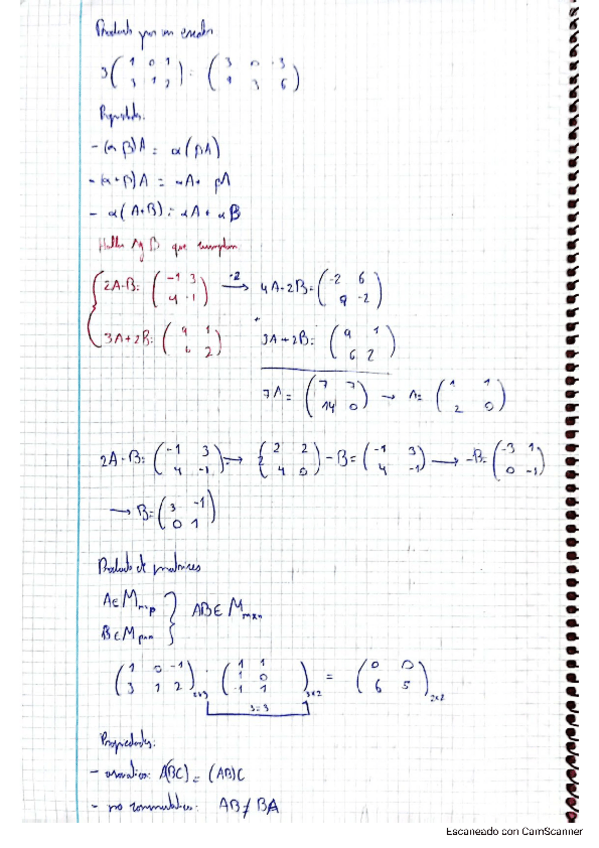 Producto por un escalar
3(1 0 1 / 3 1 2) = (3 0 3 / 9 3 6)
Propiedades:
- (α β)A = α(βA)
- (α+β)A = αA + βA
- α(A+B) = αA + αB
Hallar A y B que cumplan
2A-B= (-1 3 / 4 -1) →·2 4A-2B= (-2 6 / 8 -2)
3A+2B= (9 1 / 6 2) 3A+2B= (9 1 / 6 2)
7A= (7 7 / 14 0) → A= (1 1 / 2 0)
2A-B= (-1 3 / 4 -1) → (2 2 / 4 0) - B= (-1 3 / 4 -1) → -B= (-3 1 / 0 -1)
→ B= (3 -1 / 0 1)
Producto de matrices
A∈M mxp
B∈M pxn } AB∈M mxn
(1 0 -1 / 3 1 2) 2x3 · (1 1 / 1 0 / 1 1) 3x2 = (0 0 / 6 5) 2x2
3=3
Propiedades:
- asociativa: A(BC) = (AB)C
- no conmutativa: AB ≠ BA
Escaneado con CamScanner